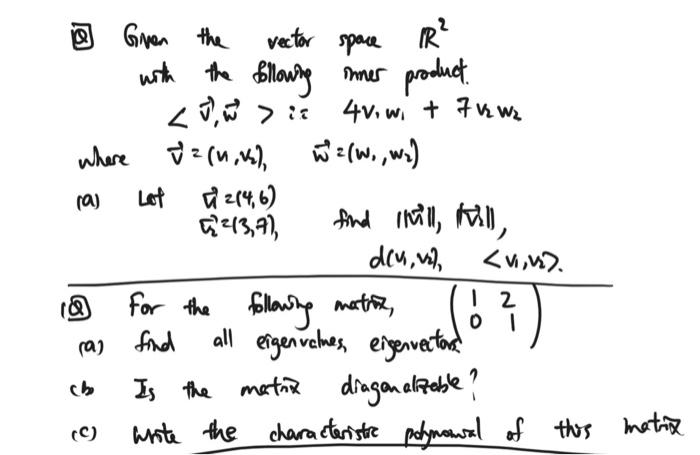 Q Given the vector space ℝ²
with the following inner product.
< v⃗, w⃗ > := 4v₁w₁ + 7v₂w₂
where v⃗ = (v₁, v₂), w⃗ = (w₁, w₂)
(a) Let v⃗₁ = (4, 6)
v⃗₂ = (3, 7), find ||v⃗₁||, ||v⃗₂||,
d(v₁, v₂), <v₁, v₂>.
Q For the following matrix, ( 1 2
0 1 )
(a) find all eigenvalues, eigenvectors
(b) Is the matrix diagonalizable?
(c) Write the characteristic polynomial of this matrix